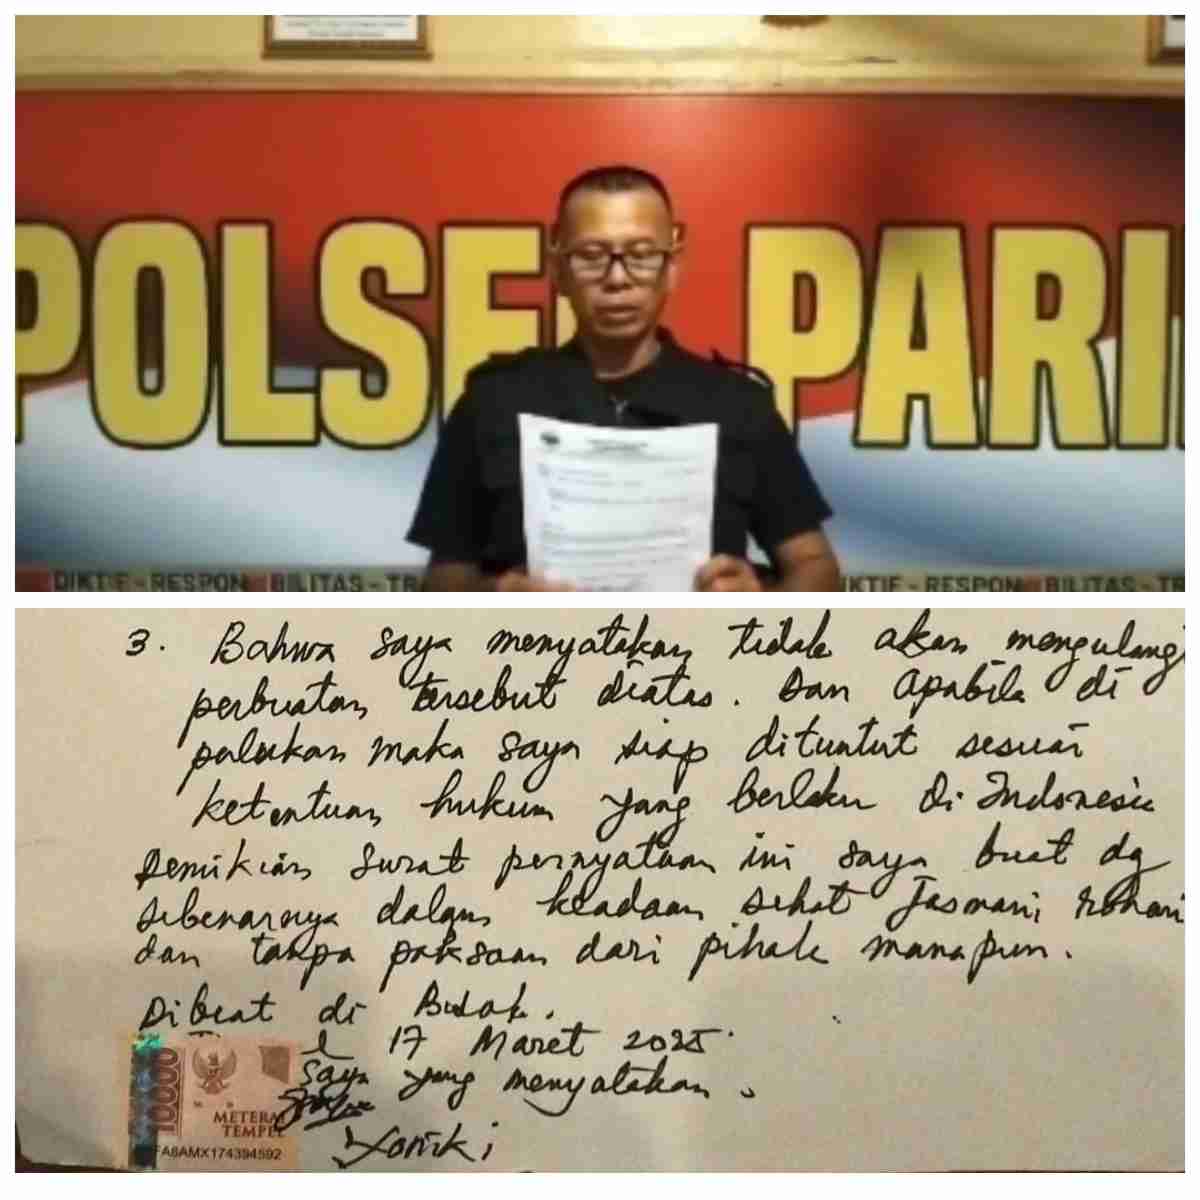 POLSE PARI
DIKTIF - RESPON BILITAS - TR
DIKTIF - RESPON BILITAS - TR
3. Bahwa saya menyatakan tidak akan mengulangi
perbuatan tersebut diatas. Dan Apabila di
palukan maka saya siap dituntut sesuai
ketentuan hukum yang berlaku Di Indonesia
Demikian surat pernyataan ini saya buat dg
sebenarnya dalam keadaan sehat Jasmani, rohani
dan tanpa paksaan dari pihak manapun.
Dibuat di
17 Maret 2025
saya yang menyatakan.
10000
METERAI
TEMPEL
FA8AMX174394592